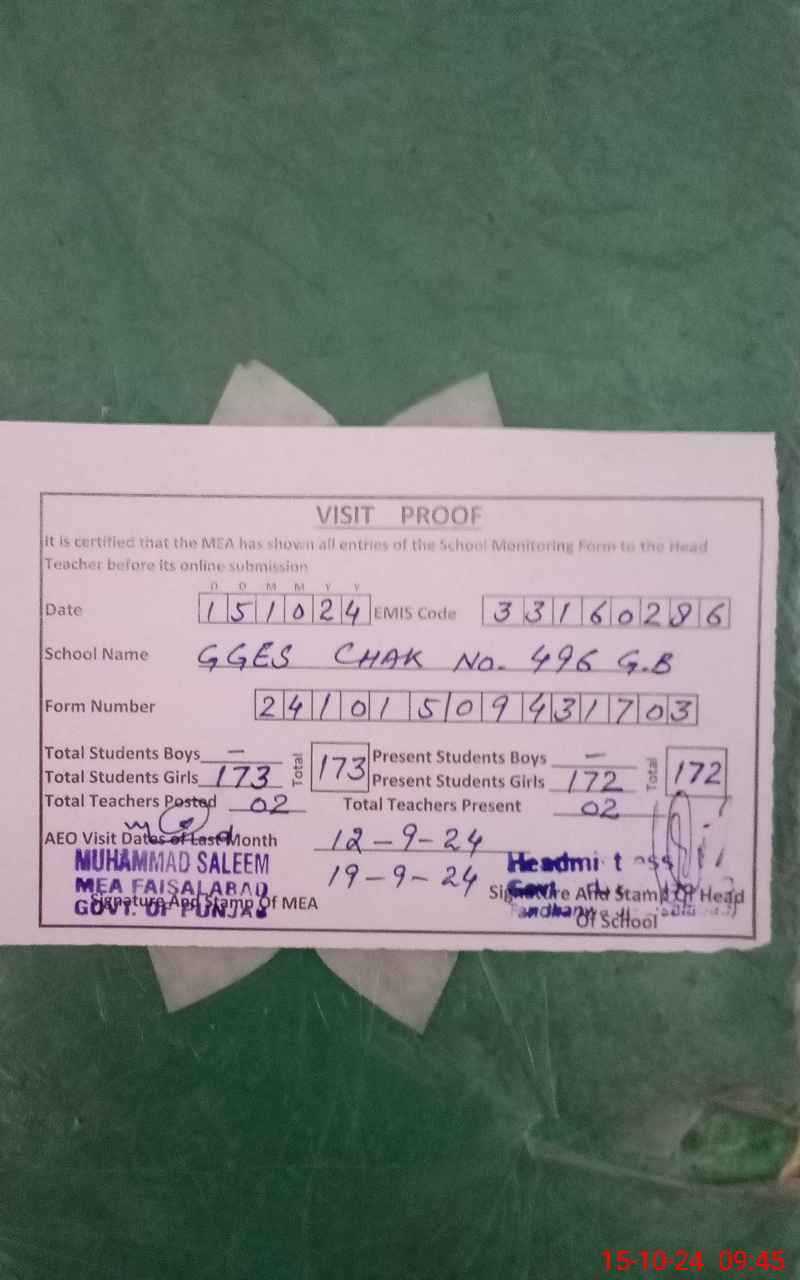 VISIT PROOF
It is certified that the MEA has shown all entries of the School Monitoring Form to the Head
Teacher before its online submission
D D M M Y Y
Date 151024 EMIS Code 33160286
School Name GGES CHAK No. 496 G.B
Form Number 2410150943 1703
Total Students Boys — Total 173 Present Students Boys — Total 172
Total Students Girls 173 Present Students Girls 172
Total Teachers Posted 02 Total Teachers Present 02
AEO Visit Dates of Last Month 12-9-24
19-9-24
MUHAMMAD SALEEM
MEA FAISALABAD
GOVT. OF PUNJAB
Signature And Stamp Of MEA
Signature And Stamp Of Head
Of School
15-10-24 09:45